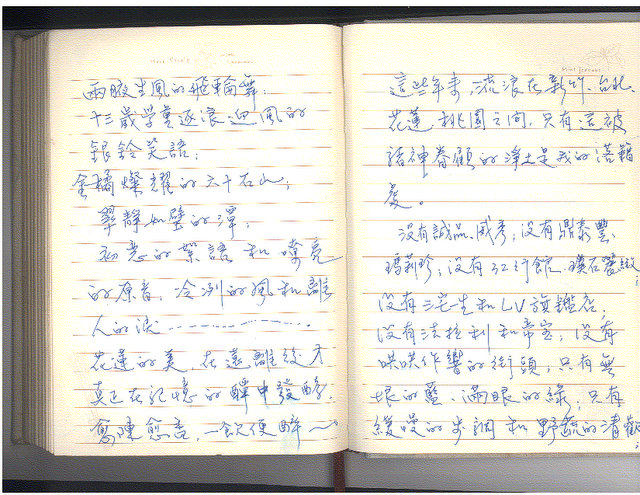 兩腋生風的飛輪舞;
十三歲學童逐浪迎風的
銀鈴笑語;
金橘燦耀的六十石山;
翠靜如璧的潭;
初戀的絮語和嘹亮
的原音,冷冽的風和離
人的淚----------
花蓮的美,在遠離後才
真正在記憶的醉中發酵.
愈陳愈香,一飲便醉~~
這些年來,流浪在新竹、台北、
花蓮、桃園之間,只有這被
諸神眷顧的淨土是我的落籍
處。
沒有誠品、威秀;沒有鼎泰豐、
瑪莉珍;沒有32行館、璞石麗緻;
沒有三宅一生和LV旗鑑店;
沒有法拉利和帝寶;沒有
哄哄作響的街頭;只有無
垠的藍、滿眼的綠;只有
緩慢的步調和野蔬的清歡;